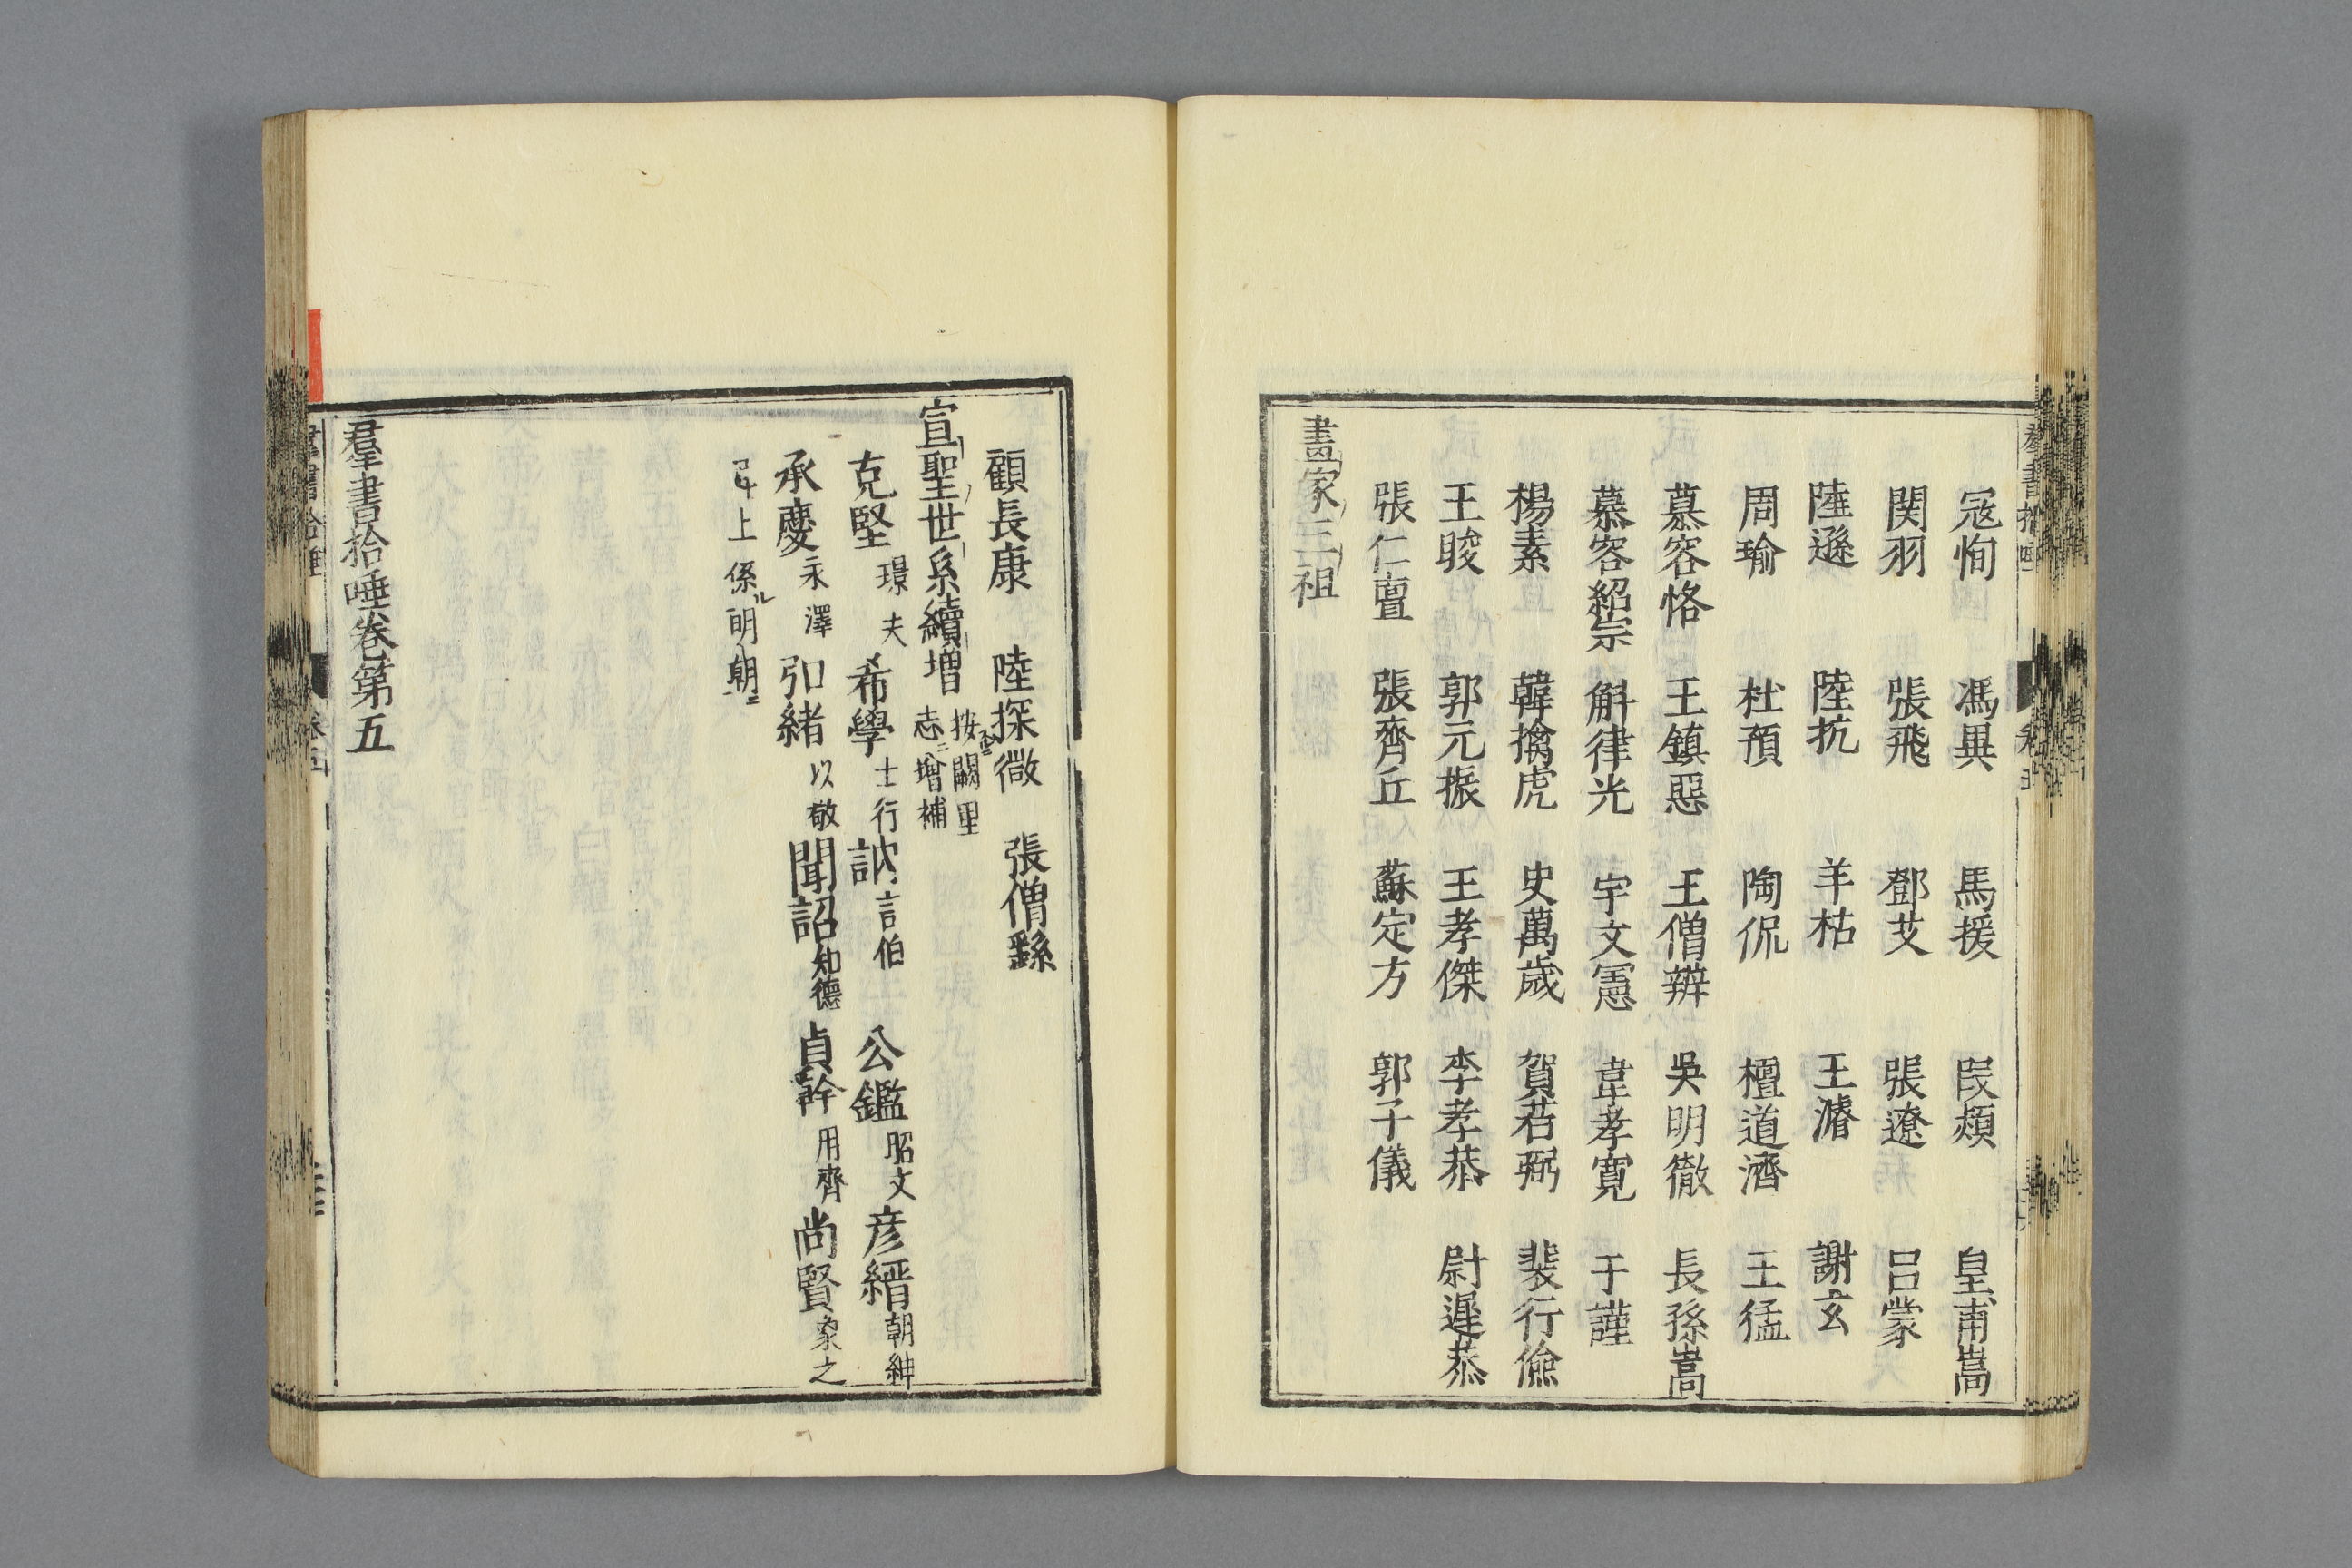 冦恂 馮異 馬援 段熲 皇甫嵩
関羽 張飛 鄧艾 張遼 呂蒙
陸遜 陸抗 羊祜 王濬 謝玄
周瑜 杜預 陶侃 檀道濟 王猛
慕容恪 王鎮惡 王僧辨 吳明徹 長孫嵩
慕容紹宗 斛律光 宇文憲 韋孝寛 于謹
楊素 韓擒虎 史萬歲 賀若弼 裴行儉
王晙 郭元振 王孝傑 李孝恭 尉遲恭
張仁亶 張齊丘 蘇定方 郭子儀
畫家三祖
顧長康 陸探微 張僧繇
宣聖世系續増 按闕里志増補
克堅 璟夫 希學 士行 訥 言伯 公鑑 昭文 彦縉 朝紳
承慶 永澤 弘緒 以敬 聞詔 知德 貞幹 用齊 尚賢 象之
已上係明朝
羣書拾唾卷第五